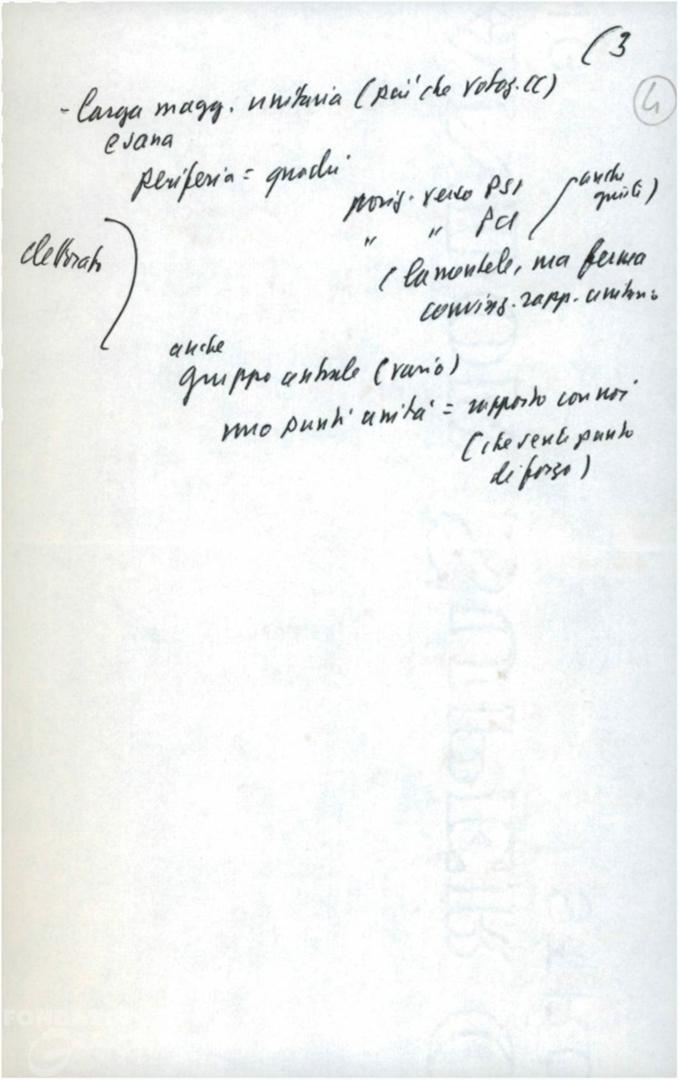 (3
4
- larga magg. unitaria (più che votaz. CC)
e sana
periferia = quadri
posiz. verso PSI
" " PCI
(anche giusti)
elettorato
(lamentele, ma ferma
convinz. rapp. unitario
anche
gruppo centrale (vario)
suo punti unità = rapporto con noi
(che sente punto
di forza)
FONDAZ